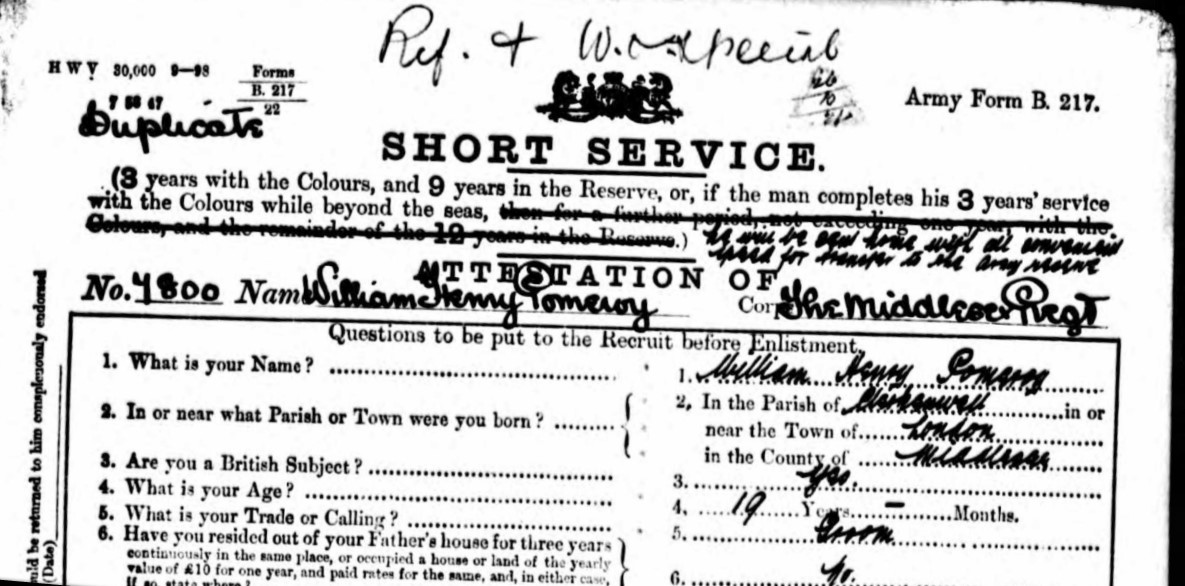 Ref. + W.O. Special
H W V 30,000 9—98 Forms
B. 217
22
Army Form B. 217.
Duplicate
SHORT SERVICE.
(3 years with the Colours, and 9 years in the Reserve, or, if the man completes his 3 years' service
with the Colours while beyond the seas, then for a further period, not exceeding one year, with the
Colours, and the remainder of the 12 years in the Reserve.) he will be sent home with all convenient
speed for transfer to the army reserve
ATTESTATION OF
No. 7800 Name William Henry Pomeroy Cor The Middlesex Regt
Questions to be put to the Recruit before Enlistment.
1. What is your Name? 1. William Henry Pomeroy
2. In or near what Parish or Town were you born? 2. In the Parish of Clerkenwell in or
near the Town of London
in the County of Middlesex
3. Are you a British Subject? 3. Yes.
4. What is your Age? 4. 19 Years — Months.
5. What is your Trade or Calling? 5. Groom
6. Have you resided out of your Father's house for three years
continuously in the same place, or occupied a house or land of the yearly
value of £10 for one year, and paid rates for the same, and, in either case,
If so, state where? 6. No
uld be returned to him conspicuously endorsed
(Date)